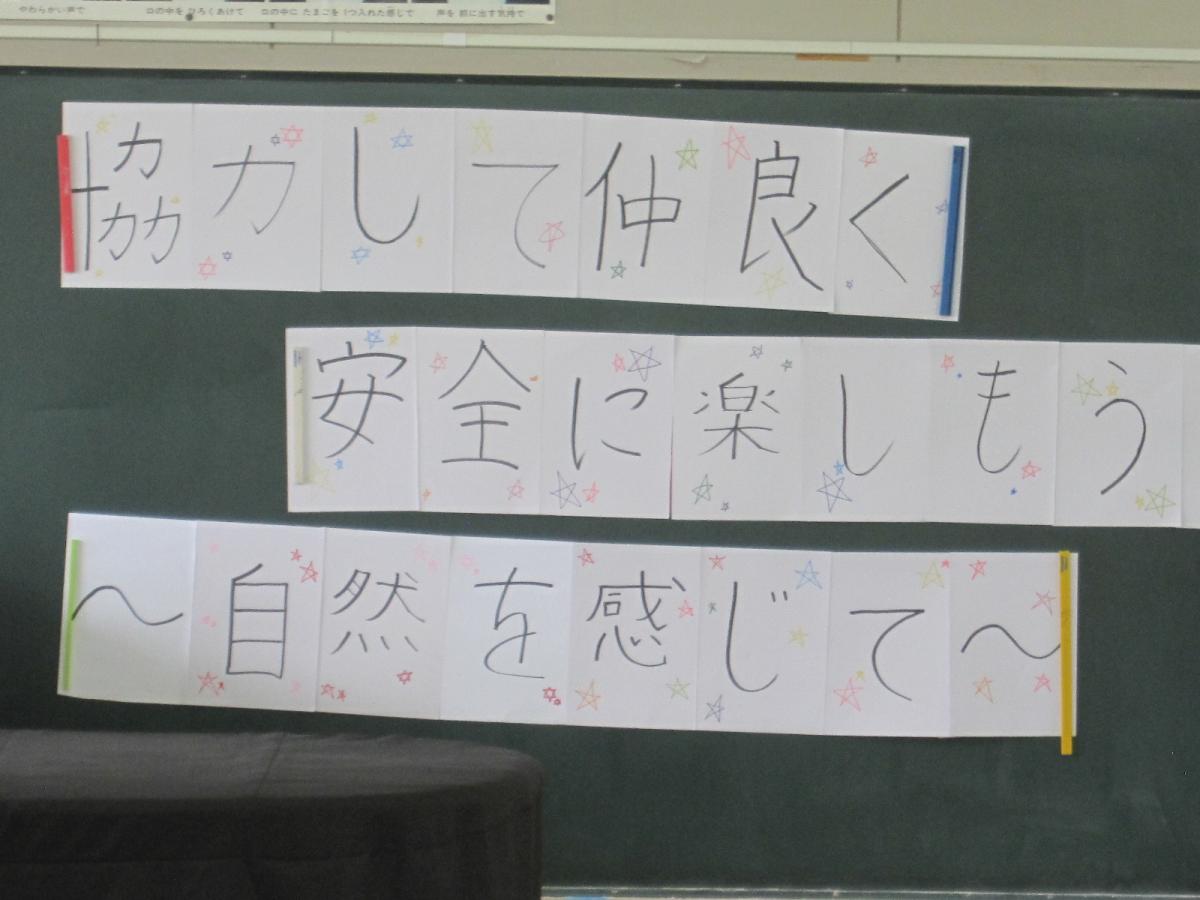 やわらかい声で 口の中を ひろくあけて 口の中に たまごを1つ入れた感じで 声を 前に出す気持で
協力して仲良く
安全に楽しもう
〜自然を感じて〜